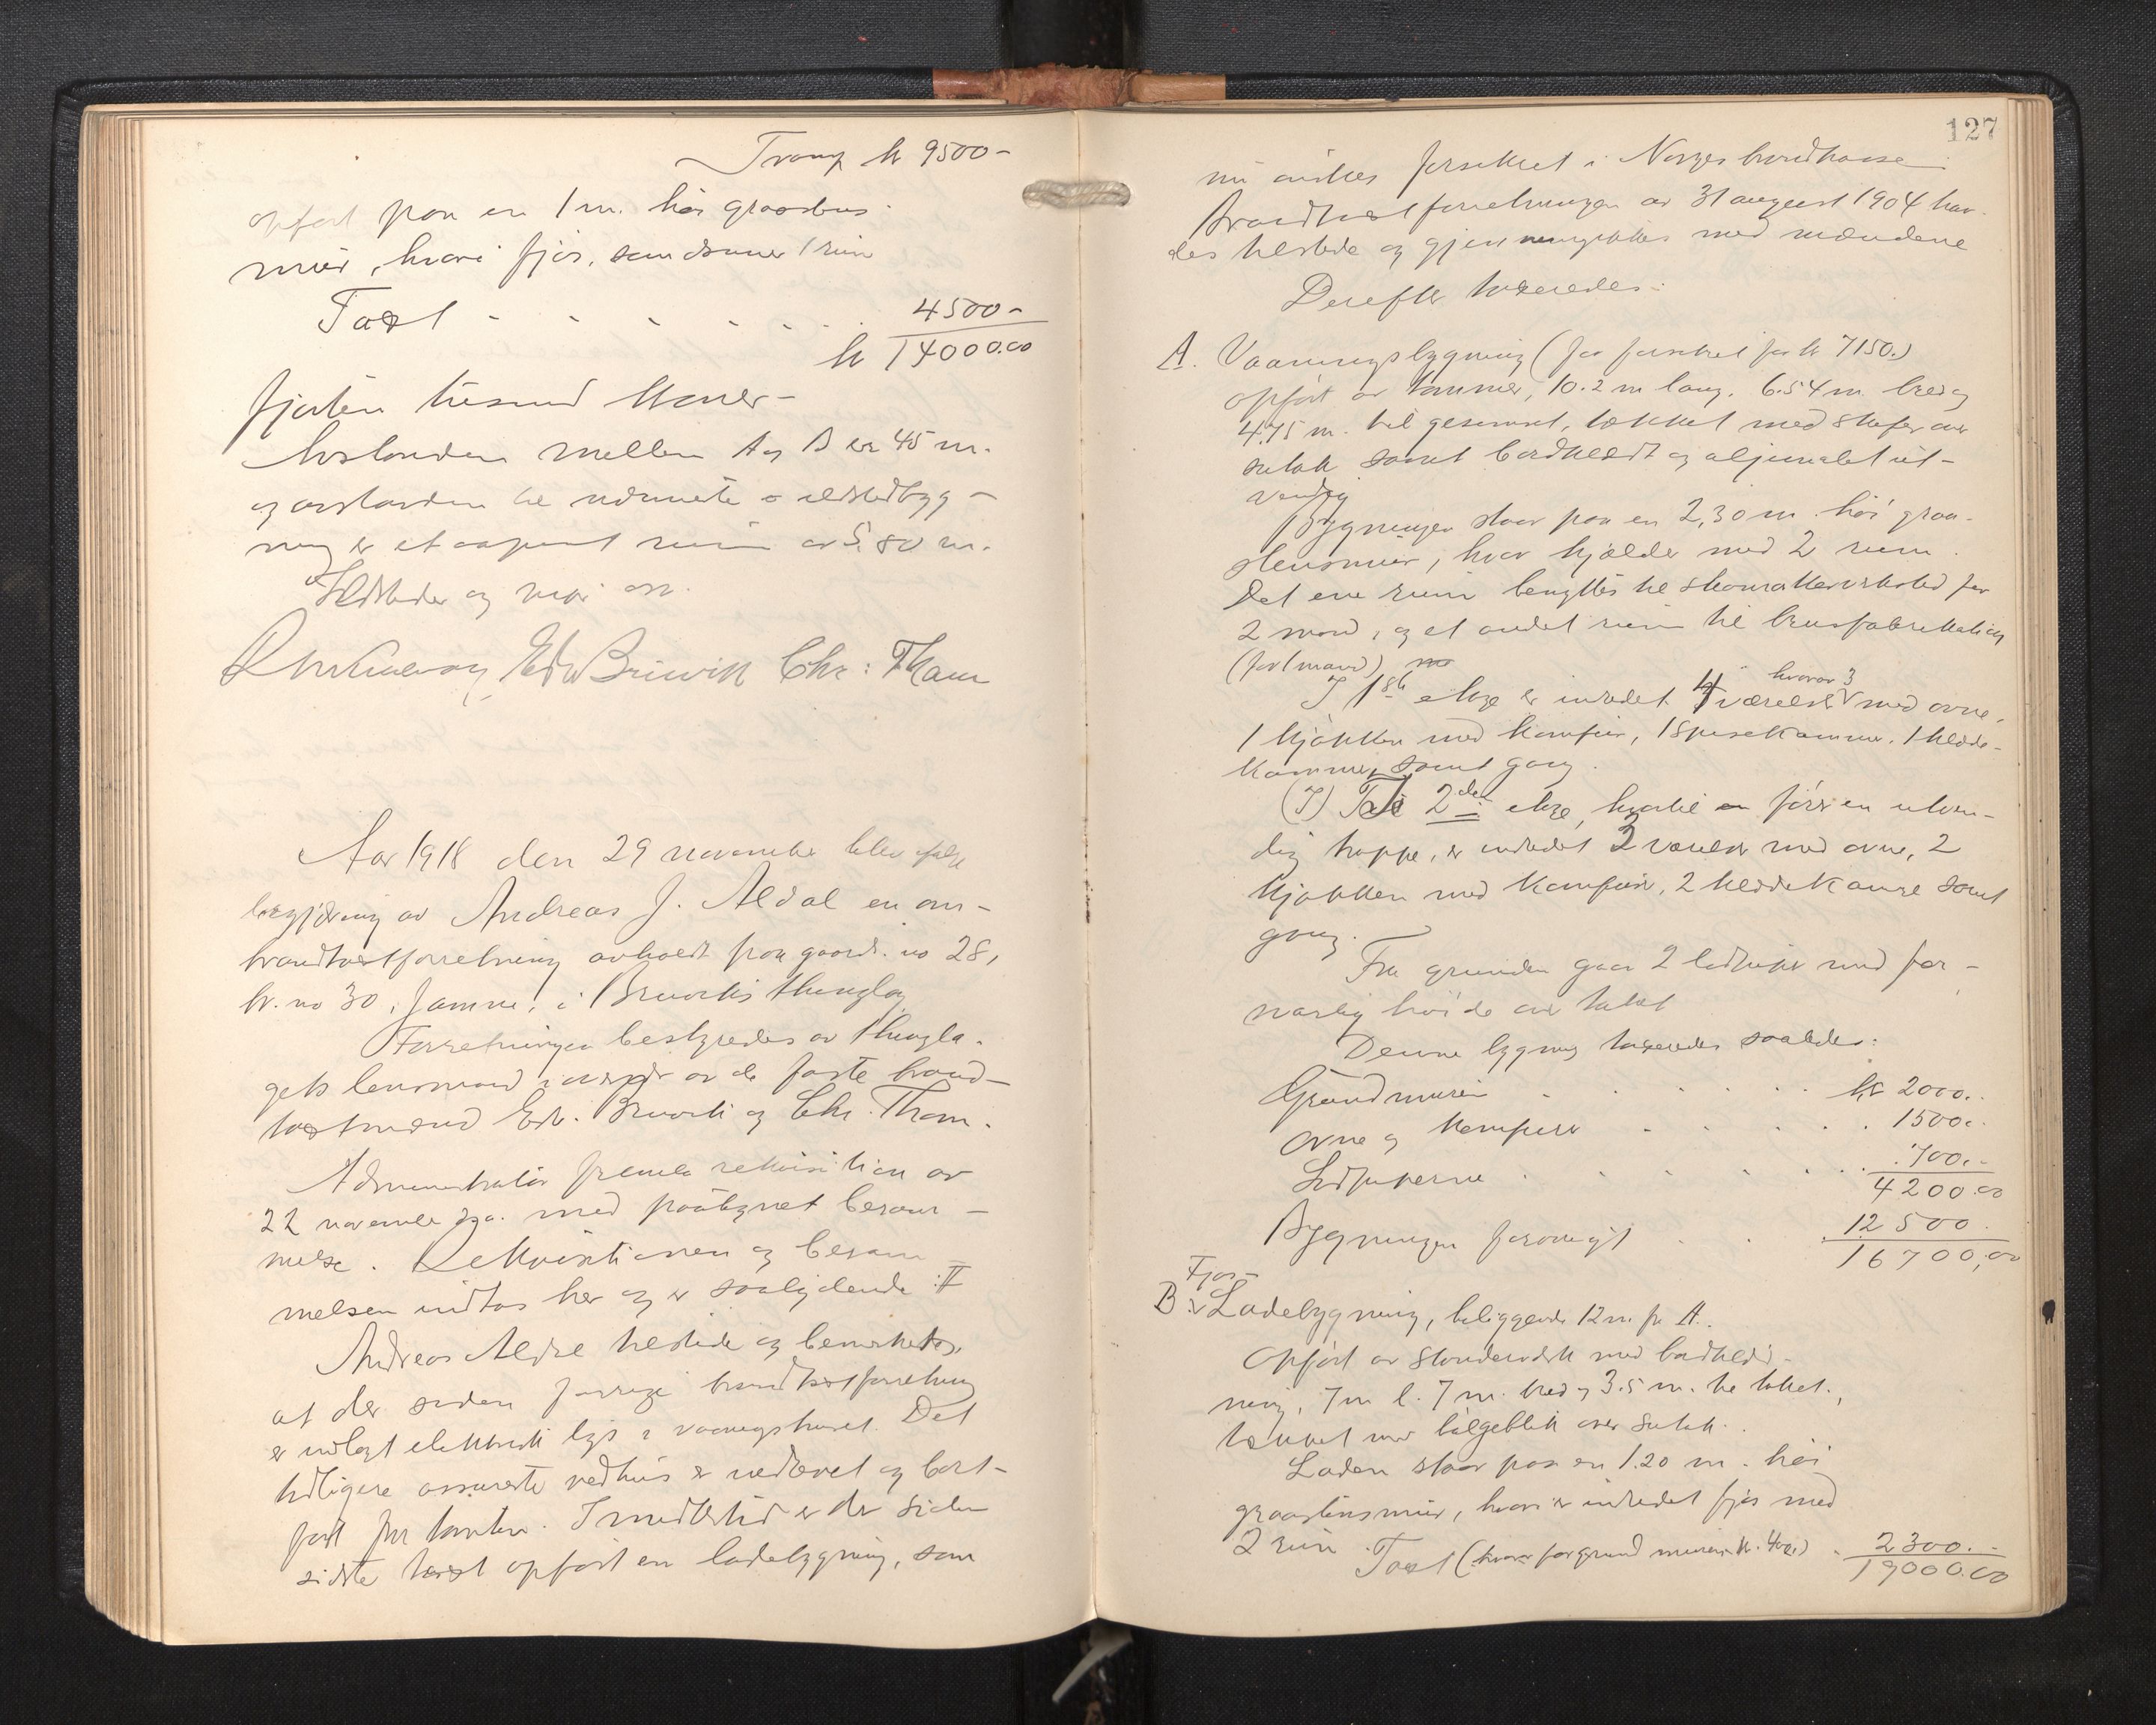 Transp kr 9500-
opført paa en 1 m. høi graastens
mur, hvori fjøs, som danner 1 rum
Taxt - - - - - - 4500-
kr 14000.00
fjorten tusend kroner-
Avstanden mellem A og B er 45 m.
og avstanden til nærmeste ildstedbyg-
ning er et aapent rum av 5.80 m.
Ildsteder og piper
Edv Bruvik Chr: Tham
Aar 1918 den 29 november blev ifølge
begjæring av Andreas J. Aldal en om-
brandtaxtforretning avholdt paa gaards. no 28,
br. no 30, i Bruviks thinglag
Forretningen bestyredes av thingla-
gets lensmand i overvær av de faste brand-
taxtmænd Edv. Bruvik og Chr. Tham.
Administrator fremla rekvisition av
22 november d.a. med paategnet beram-
melse. Rekvisitionen og beram
melsen indtas her og er saalydende :#
Andreas Aldal tilstede og bemerkedes,
at der siden forrige brandtaxtforretning
er indlagt elektrisk lys i vaaningshuset. Det
tidligere assurerte vedhus er nedrevet og bort-
ført fra tomten. Imidlertid er der siden
sidste taxt opført en ladebygning, som
127
nu ønskes forsikret i Norges brandkasse
Brandtaxtforretningen av 31 august 1904 hav-
des tilstede og gjennemgikkes med mændene
Derefter taxeredes:
A. Vaaningsbygning (før forsikret for kr 7150.)
opført av tømmer, 10.2 m lang, 6.54 m. bred og
4.75 m. til gesimset, tækket med skifer over
sutak samt bordklædt og oljemalet ut-
vendig
Bygningen staar paa en 2,30 m. høi graa-
stensmur, hvor kjælder med 2 rum.
Det ene rum benyttes til skomakerverksted for
2 mand, og et andet rum til brusfabrikation
(for 1 mand)
I 1ste etage er indredet 4 værelser hvorav 3 med ovne,
1 kjøkken med komfur, 1 spisekammer, 1 klæde-
kammer, samt gang.
(I) Til 2den etage, hvortil fører en utven-
dig trappe, er indredet 3 værelser med ovne, 2
kjøkken med komfur, 2 klædekamre samt
gang.
Fra grunden gaar 2 ledpiper med for-
svarlig høide over taket
Denne bygning taxeredes saaledes:
Grundmuren . . . . . . kr 2000.-
Ovne og komfurer . . . . . 1500.-
Ledpiperne . . . . . . 700.-
4200.00
Bygningen forøvrigt . . 12500.
16700,00
B. Fjøs- v Ladebygning, beliggende 12 m. fr A.
Opført av stenderverk med bordklæd-
ning, 7 m l. 7 m. bred og 3.5 m. til taket,
tækket med bølgeblik over sutak.
Laden staar paa en 1.20 m. høi
graastensmur, hvori er indredet fjøs med
2 rum. Taxt (hvorav for grundmuren kr. 400.) . 2300.-
19000.00